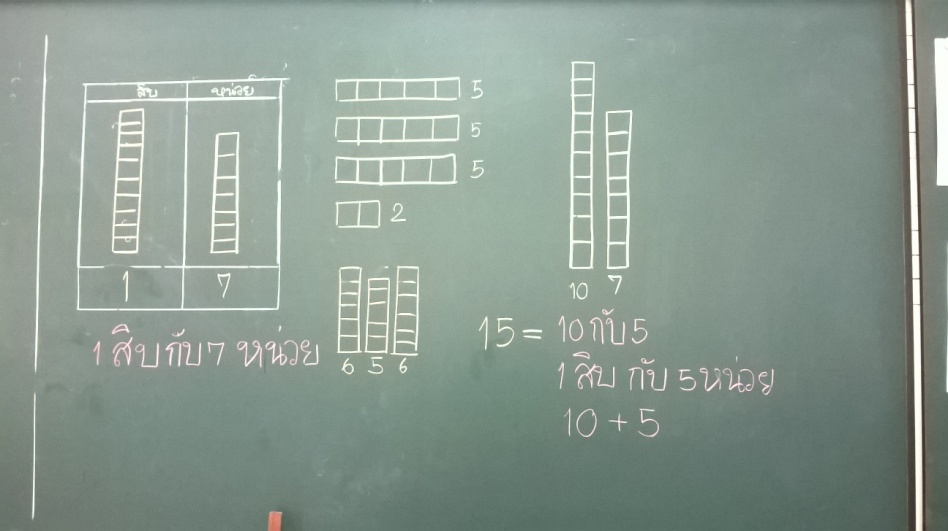 สิบ หน่วย
1 7
1 สิบกับ 7 หน่วย
5
5
5
2
6 5 6
10 7
15 = 10 กับ 5
1 สิบ กับ 5 หน่วย
10 + 5